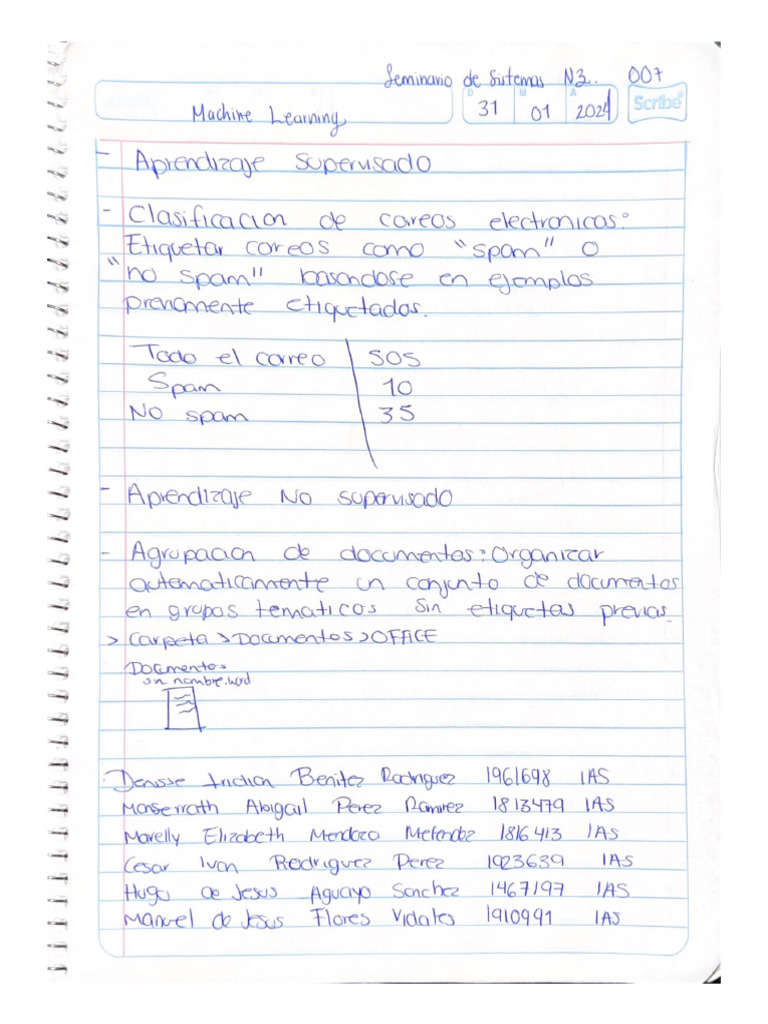 Seminario de Sistemas N3. 007
D M A
31 01 2024
Scribe
Machine Learning
- Aprendizaje Supervisado
- Clasificacion de correos electronicos:
Etiquetar correos como "spam" o
"no spam" basandose en ejemplos
previamente etiquetados.
Todo el correo | 505
Spam | 10
No spam | 35
- Aprendizaje No supervisado
- Agrupacion de documentos: Organizar
automaticamente un conjunto de documentos
en grupos tematicos sin etiquetas previas.
> Carpeta > Documentos > OFFICE
Documentos
sin nombre.word
Denisse Benitez Rodriguez 1961698 IAS
Monserrath Abigail Perez Ramirez 1813479 IAS
Marelly Elizabeth Mendoza Melendez 1816413 IAS
Cesar Ivan Rodriguez Perez 1923639 IAS
Hugo de Jesus Aguayo Sanchez 1467197 IAS
Manuel de Jesus Flores Vidales 1910991 IAS